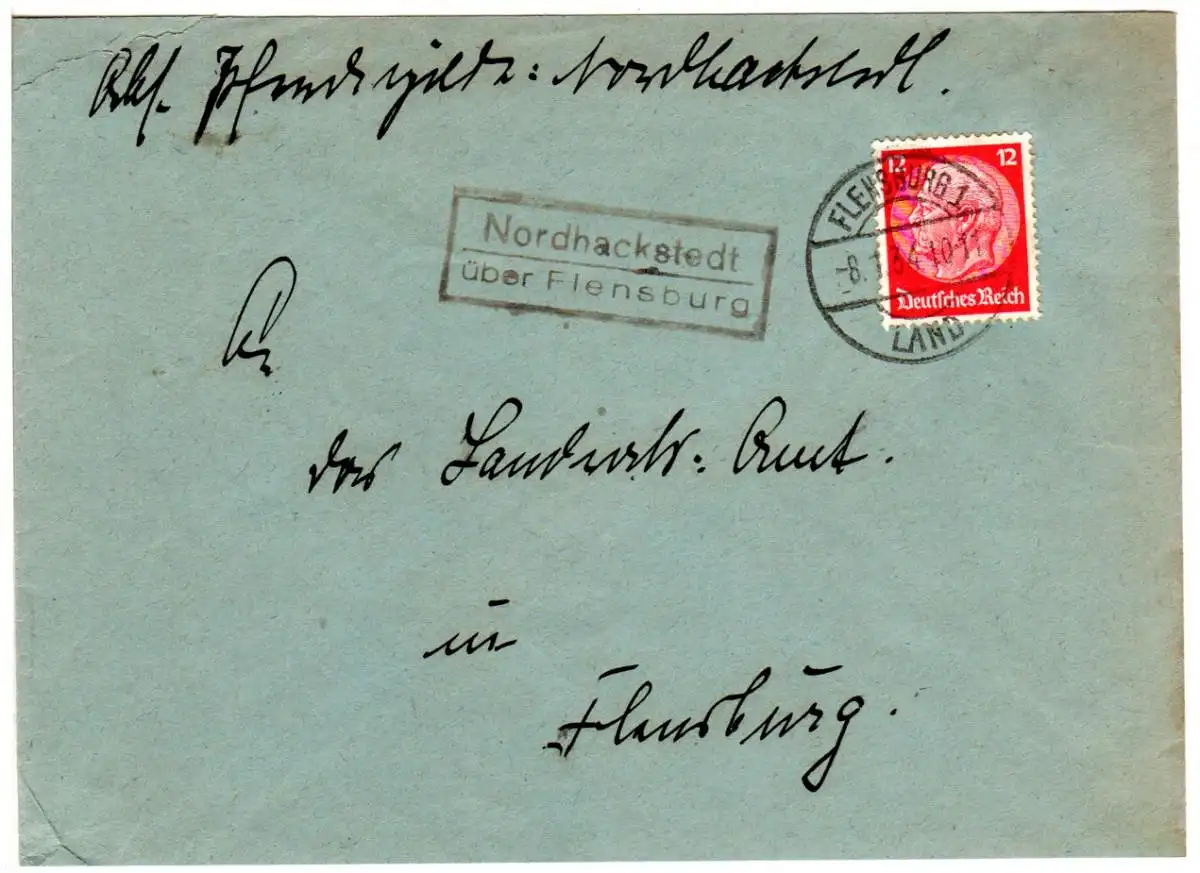 Abs. Pferdegilde: Nordhackstedt.
12 12
FLENSBURG 1
Nordhackstedt
über Flensburg
-8.1.34.10-11
Deutsches Reich
LAND
An
das Landrats-Amt.
in
Flensburg.